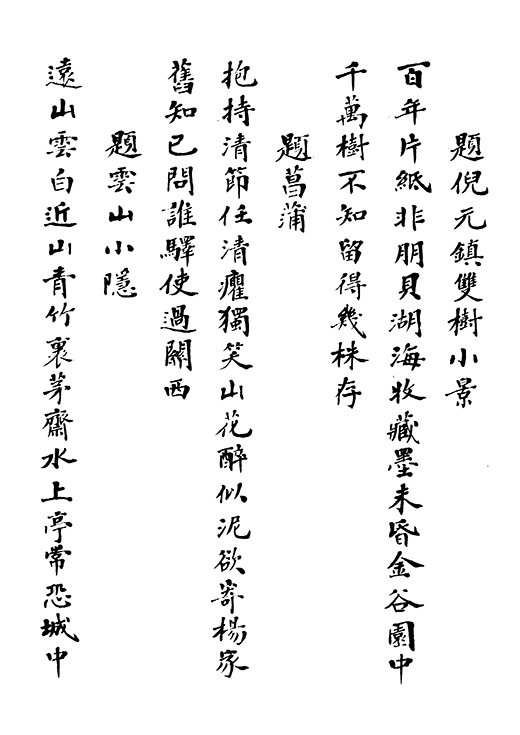 題倪元鎮雙樹小景
百年片紙非朋貝湖海收藏墨未昏金谷園中
千萬樹不知留得幾株存
題菖蒲
抱持清節任清癯獨笑山花醉似泥欲寄楊家
舊知己問誰驛使過關西
題雲山小隱
遠山雲白近山青竹裏茅齋水上亭常恐城中